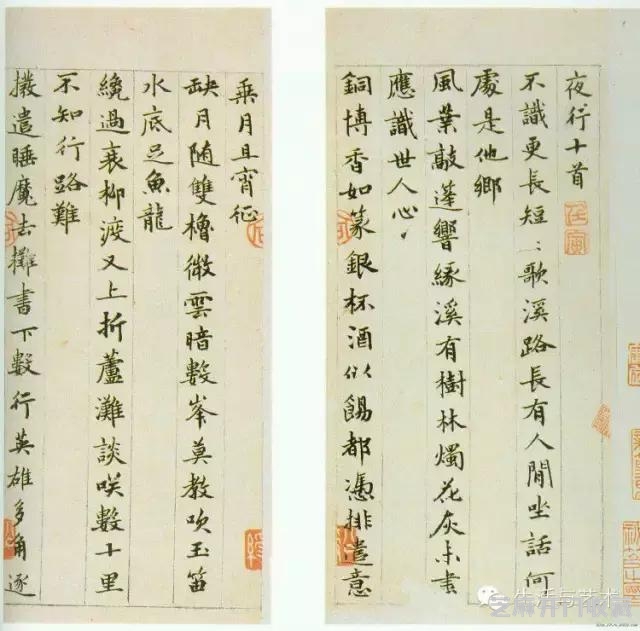 夜行十首
不識更長短〻歌溪路長有人閒坐話何
處是他鄉
風葉敲蓬響緣溪有樹林燭花灰未盡
應識世人心
銅博香如篆銀杯酒似餳都憑排遣意
乘月且宵征
缺月随雙櫓微雲暗數峯莫教吹玉笛
水底足魚龍
纔過衰柳渡又上折蘆灘談咲數十里
不知行路難
撥遣睡魔去攤書下數行英雄多角逐
生活与艺术